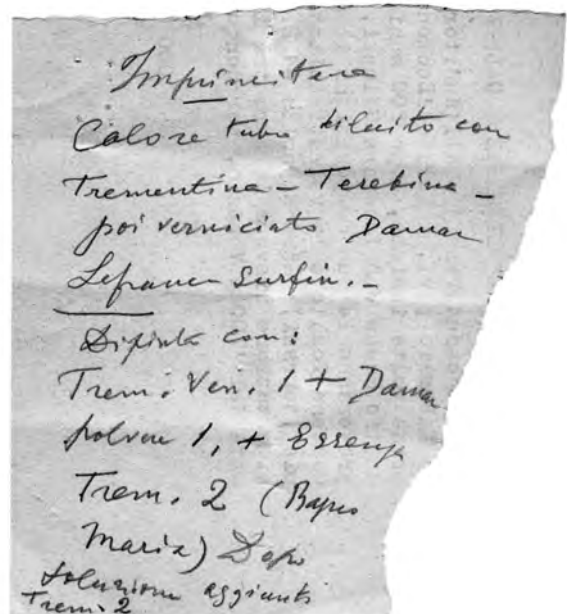 Imprimitura
Colore tubo diluito con
Trementina - Terebina -
poi verniciato Damar
Lefranc Surfin. -
Dipinto con:
Trem. Ven. 1 + Damar
polvere 1, + Essenza
Trem. 2 (Bagno
Maria) Dopo
soluzione aggiunto
Trem. 2